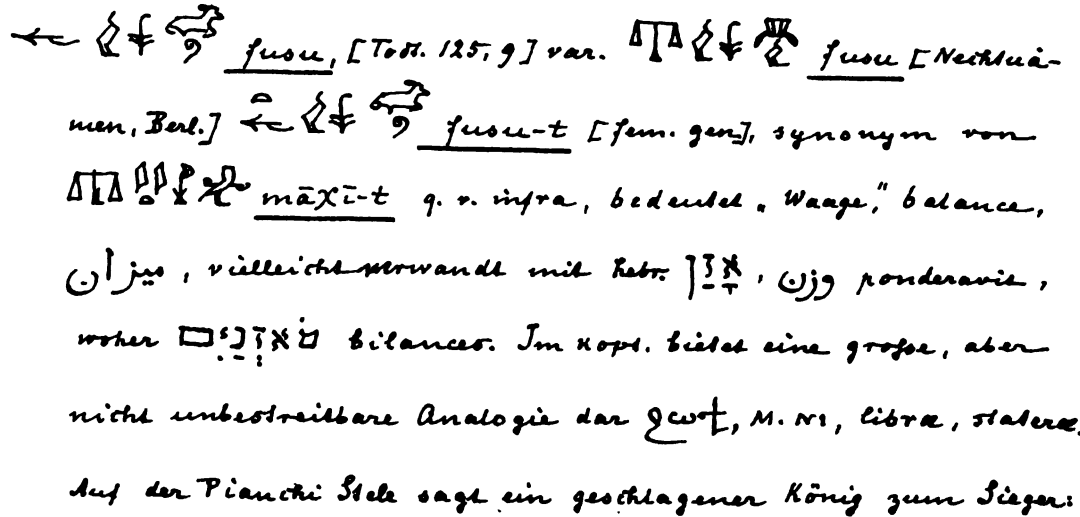 fusu, [Todt. 125, 9] var. fusu [Nechtuâ-
men, Berl.] fusu-t [fem. gen.], synonym von
māχī-t q. v. infra, bedeutet „Waage", balance,
ميزان, vielleicht verwandt mit hebr. אָזַן, وزن ponderavit,
woher מֹאזְנַיִם bilances. Im Kopt. bietet eine große, aber
nicht unbestreitbare Analogie dar ϣⲱϯ, M. ⲛⲓ, libra, statera.
Auf der Pianchi Stele sagt ein geschlagener König zum Sieger: